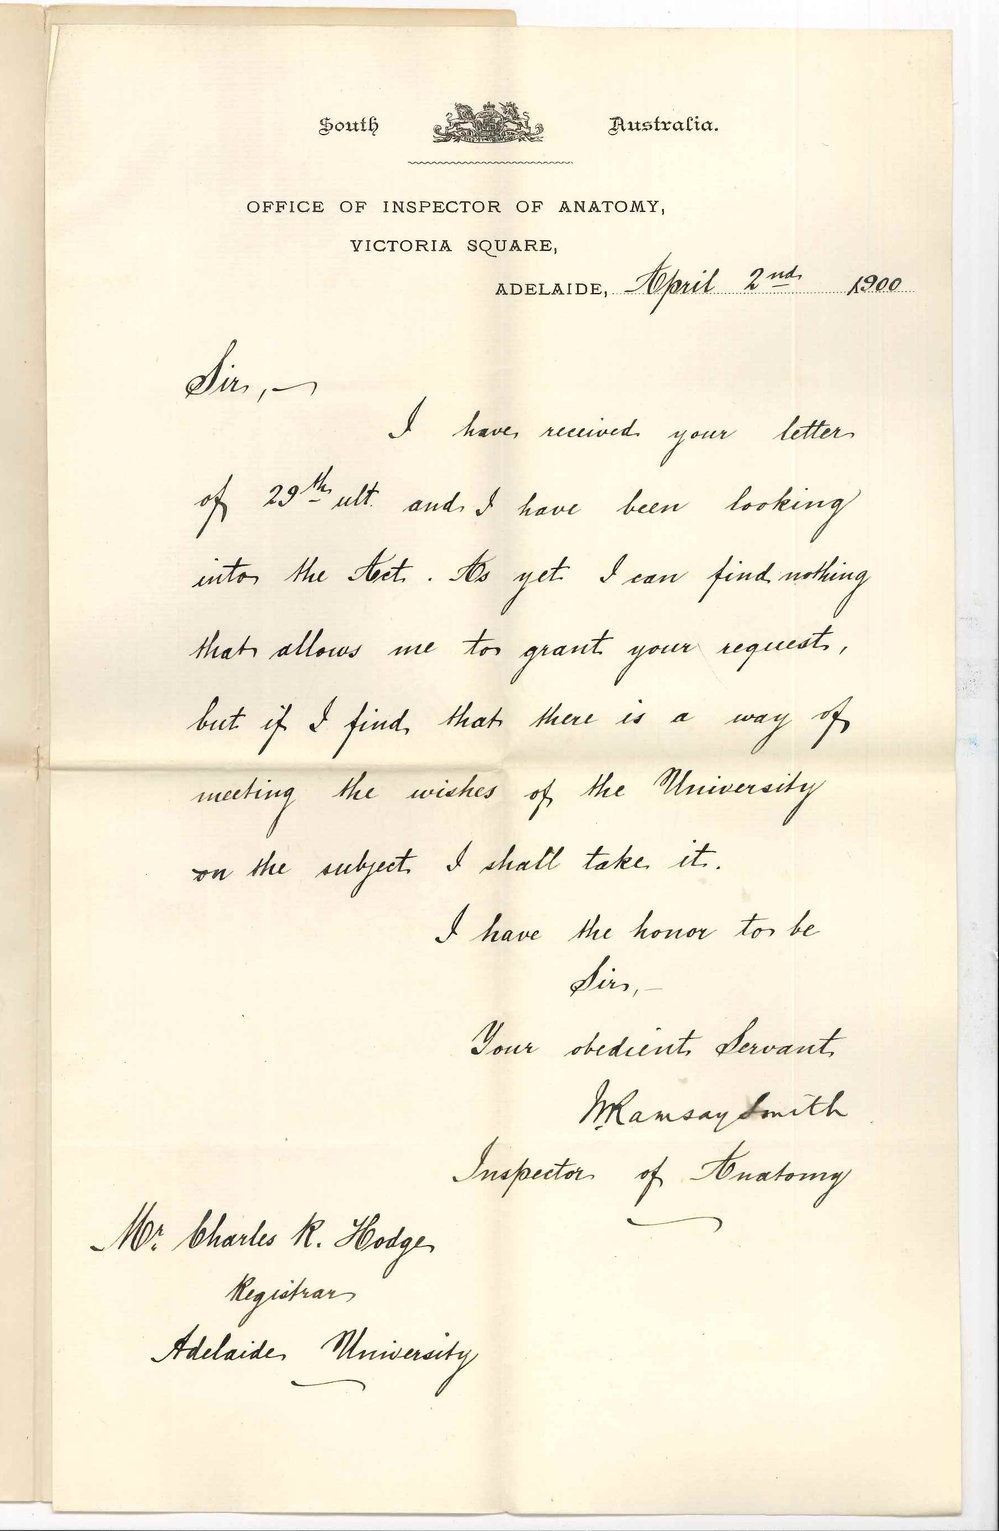 South Australia.
OFFICE OF INSPECTOR OF ANATOMY,
VICTORIA SQUARE,
ADELAIDE, April 2nd 1900
Sir,—
I have received your letter
of 29th ult. and I have been looking
into the Act. As yet I can find nothing
that allows me to grant your request,
but if I find that there is a way of
meeting the wishes of the University
on the subject I shall take it.
I have the honor to be
Sir,—
Your obedient Servant
W. Ramsay Smith
Inspector of Anatomy
Mr. Charles R. Hodge
Registrar
Adelaide University